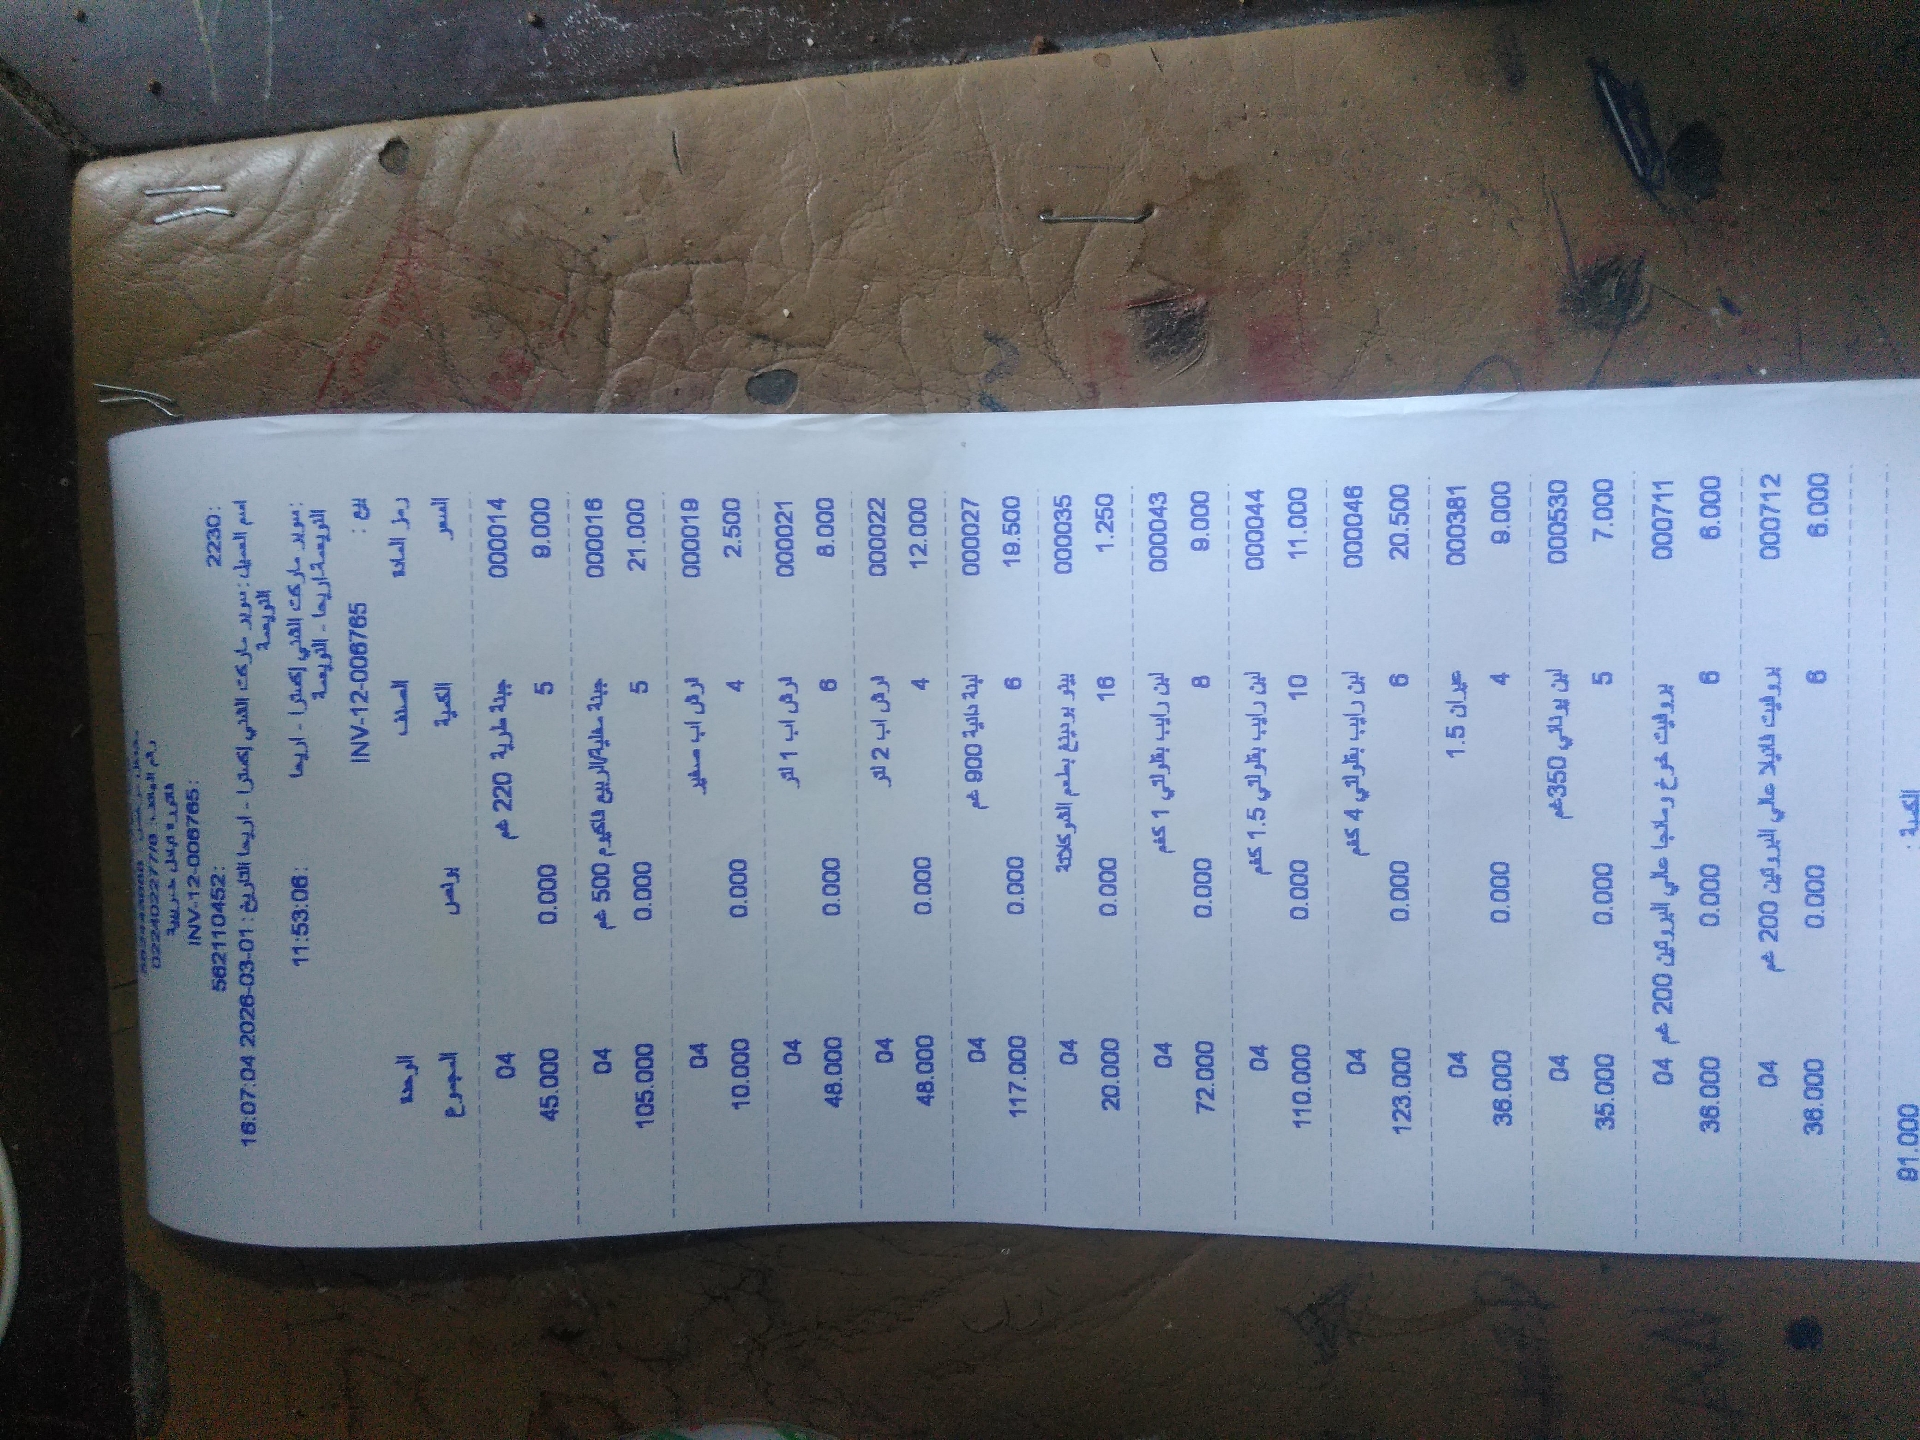 0224022770 :رقم الهاتف
فاتورة
INV-12-006765:
562110452: 2230:
اسم العميل: سوبر ماركت القدس إكسترا - اريحا التاريخ: 2026-03-01 16:07:04
:سوبر ماركت القدس إكسترا - اريحا 11:53:06:
بيع : INV-12-006765
رمز المادة الصنف الوحدة
السعر الكمية بونص المجموع
000014 جبنة طرية 220 غم 04
9.000 5 0.000 45.000
000016 500 غم 04
21.000 5 0.000 105.000
000019 فرش اب صغير 04
2.500 4 0.000 10.000
000021 فرش اب 1 لتر 04
8.000 6 0.000 48.000
000022 فرش اب 2 لتر 04
12.000 4 0.000 48.000
000027 لبنة دانية 900 غم 04
19.500 6 0.000 117.000
000035 بودينغ بطعم الشوكلاتة 04
1.250 16 0.000 20.000
000043 لبن رايب بقلولتي 1 كغم 04
9.000 8 0.000 72.000
000044 لبن رايب بقلولتي 1.5 كغم 04
11.000 10 0.000 110.000
000046 لبن رايب بقلولتي 4 كغم 04
20.500 6 0.000 123.000
000381 عيران 1.5 04
9.000 4 0.000 36.000
000530 لبن يوناني 350غم 04
7.000 5 0.000 35.000
000711 بروفيت خوخ ومانجا عالي البروتين 200 غم 04
6.000 6 0.000 36.000
000712 بروفيت فانيلا عالي البروتين 200 غم 04
6.000 6 0.000 36.000
الكمية: 91.000